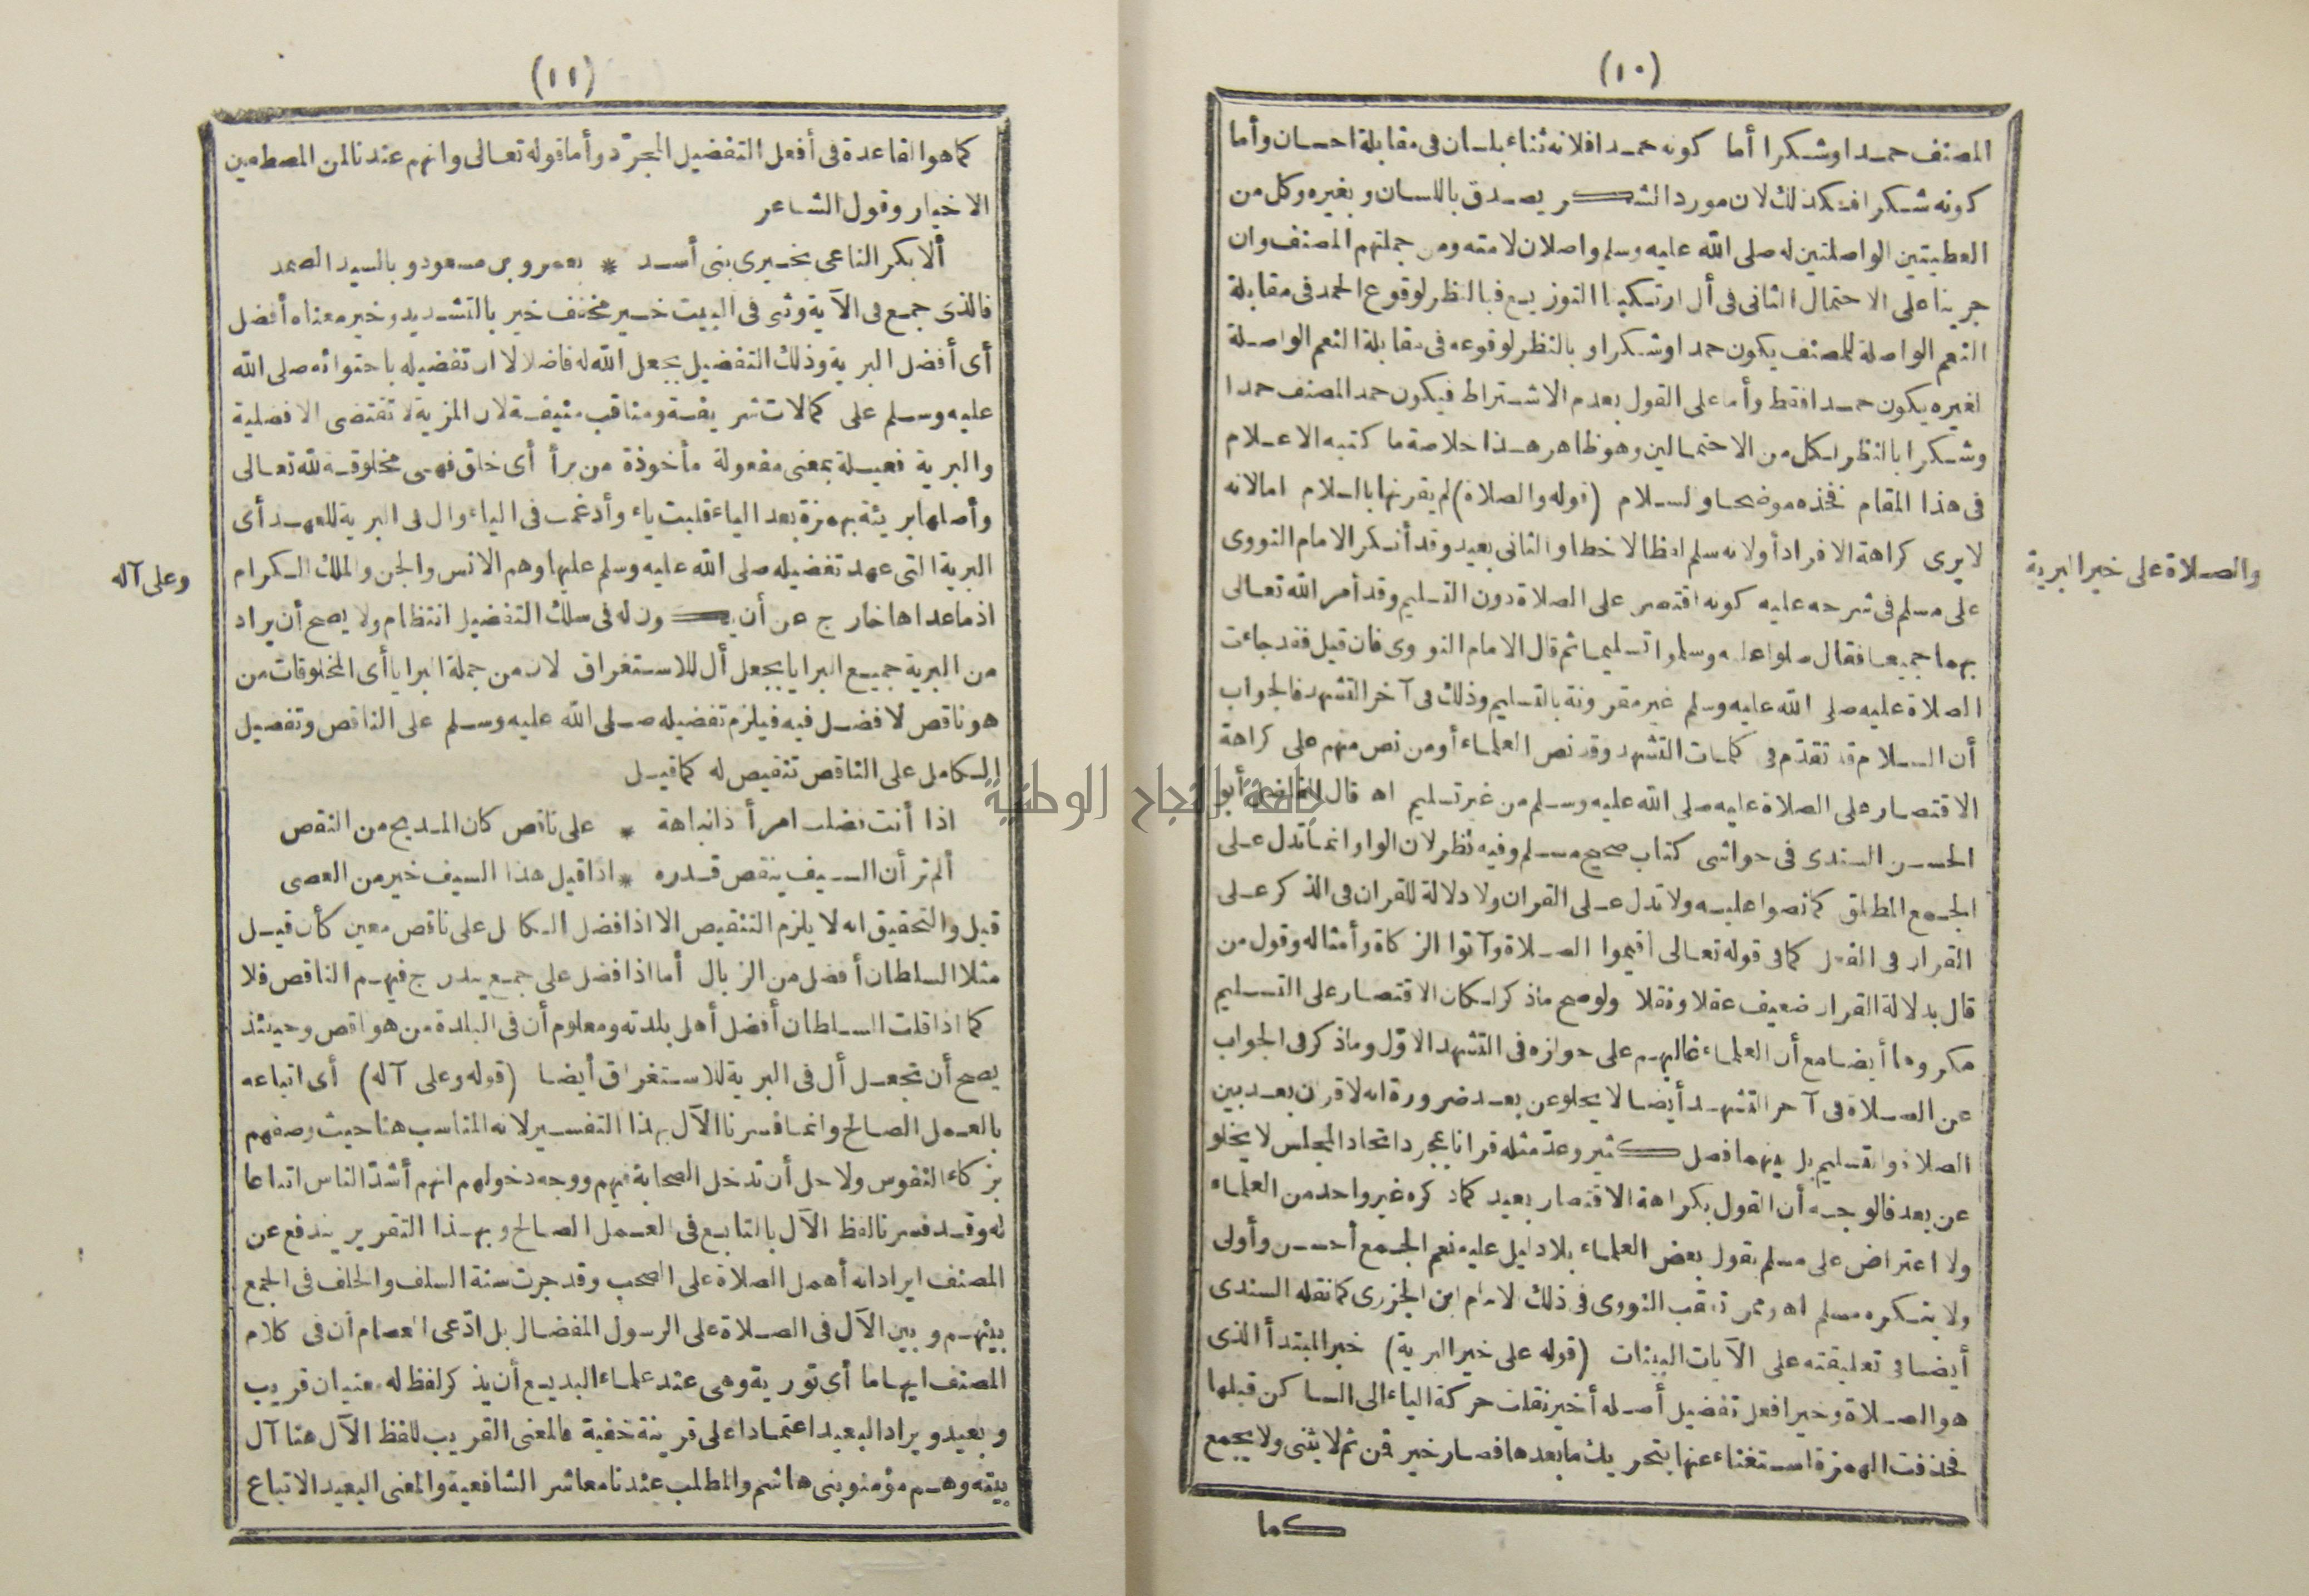 (١٠)
المصنف حمدا وشكرا أما كونه حمدا فلانه ثناء بلسان فى مقابلة احسان وأما
كونه شكرا فكذلك لان مورد الشكر يصدق باللسان وبغيره وكل من
العطيتين الواصلتين له صلى الله عليه وسلم واصلان لامته ومن جملتهم المصنف وان
جرينا على الاحتمال الثانى فى أل ارتكبنا التوزيع فبالنظر لوقوع الحمد فى مقابلة
النعم الواصلة للمصنف يكون حمدا وشكرا وبالنظر لوقوعه فى مقابلة النعم الواصلة
لغيره يكون حمدا فقط وأما على القول بعدم الاشتراط فيكون حمد المصنف حمدا
وشكرا بالنظر لكل من الاحتمالين وهو ظاهر هذا خلاصة ما كتبه الاعلام
فى هذا المقام فخذه موضحا والسلام (قوله والصلاة) لم يقرنها بالسلام اما لانه
لا يرى كراهة الافراد أو لانه سلم لفظا لاخطا والثانى بعيد وقد أنكر الامام النووى
على مسلم فى شرحه عليه كونه اقتصر على الصلاة دون التسليم وقد أمر الله تعالى
بهما جميعا فقال صلوا عليه وسلموا تسليما ثم قال الامام النووى فان قيل فقد جاءت
الصلاة عليه صلى الله عليه وسلم غير مقرونة بالتسليم وذلك فى آخر التشهد فالجواب
أن السلام قد تقدّم فى كلمات التشهد وقد نص العلماء أو من نص منهم على كراهة
الاقتصار على الصلاة عليه صلى الله عليه وسلم من غير تسليم اه قال القاضى أبو
الحسن السندى فى حواشى كتاب صحيح مسلم وفيه نظر لان الواو انما تدل على
الجمع المطلق كما نصوا عليه ولا تدل على القران ولا دلالة للقران فى الذكر على
القران فى الفعل كما فى قوله تعالى أقيموا الصلاة وآتوا الزكاة وأمثاله وقول من
قال بدلالة القران ضعيف عقلا ونقلا ولو صح ما ذكر لكان الاقتصار على التسليم
مكروها أيضا مع أن العلماء غالبهم على جوازه فى التشهد الاوّل وما ذكر فى الجواب
عن الصلاة فى آخر التشهد أيضا لا يخلو عن بعد ضرورة انه لا قران بعد بين
الصلاة والتسليم بل بينهما فصل كثير وعدّ مثله قرانا بمجرد اتحاد المجلس لا يخلو
عن بعد فالوجه أن القول بكراهة الاقتصار بعيد كما ذكره غير واحد من العلماء
ولا اعتراض على مسلم بقول بعض العلماء بلا دليل عليه نعم الجمع أحسن وأولى
ولا ينكره مسلم اه وممن تعقب النووى فى ذلك الامام ابن الجزرى كما نقله السندى
أيضا فى تعليقته على الآيات البينات (قوله على خير البرية) خبر المبتدأ الذى
هو الصلاة وخير افعل تفضيل أصله أخير نقلت حركة الياء الى الساكن قبلها
فحذفت الهمزة استغناء عنها بتحريك ما بعدها فصار خير فمن ثم لا يثنى ولا يجمع
كما
والصلاة على خير البرية
(١١)
كما هو القاعدة فى أفعل التفضيل المجرّد وأما قوله تعالى وانهم عندنا لمن المصطفين
الاخيار وقول الشاعر
ألا بكر الناعى بخيرى بنى أسد * بعمرو بن مسعود وبالسيد الصمد
فالذى جمع فى الآية وثنى فى البيت خير مخفف خير بالتشديد وخير معناه أفضل
أى أفضل البرية وذلك التفضيل بجعل الله له فاضلا لا ان تفضيله باحتوائه صلى الله
عليه وسلم على كمالات شريفة ومناقب منيفة لان المزية لا تقتضى الافضلية
والبرية فعيلة بمعنى مفعولة مأخوذة من برأ أى خلق فهى مخلوقة لله تعالى
وأصلها بريئة بهمزة بعد الياء قلبت ياء وأدغمت فى الياء وال فى البرية للعهد أى
البرية التى عهد تفضيله صلى الله عليه وسلم عليها وهم الانس والجن والملك الكرام
اذ ما عداها خارج عن أن يكون له فى سلك التفضيل انتظام ولا يصح أن يراد
من البرية جميع البرايا بجعل أل للاستغراق لان من جملة البرايا أى المخلوقات من
هو ناقص لا فضل فيه فيلزم تفضيله صلى الله عليه وسلم على الناقص وتفضيل
الكامل على الناقص تنقيص له كما قيل
اذا أنت فضلت امرأ ذا نباهة * على ناقص كان المديح من النقص
ألم تر أن السيف ينقص قدره * اذا قيل هذا السيف خير من العصى
قيل والتحقيق انه لا يلزم التنقيص الا اذا فضل الكامل على ناقص معين كأن قيل
مثلا السلطان أفضل من الزبال أما اذا فضل على جمع يندرج فيهم الناقص فلا
كما اذا قلت السلطان أفضل أهل بلدته ومعلوم أن فى البلدة من هو ناقص وحينئذ
يصح أن تجعل أل فى البرية للاستغراق أيضا (قوله وعلى آله) أى اتباعه
بالعمل الصالح وانما فسرنا الآل بهذا التفسير لانه المناسب هنا حيث وصفهم
بزكاء النفوس ولاجل أن تدخل الصحابة فيهم ووجه دخولهم انهم أشدّ الناس اتباعا
له وقد فسرنا لفظ الآل بالتابع فى العمل الصالح وبهذا التقرير يندفع عن
المصنف ايراد انه أهمل الصلاة على الصحب وقد جرت سنة السلف والخلف فى الجمع
بينهم وبين الآل فى الصلاة على الرسول المفضال بل ادّعى العصام أن فى كلام
المصنف ايهاما أى تورية وهى عند علماء البديع أن يذكر لفظ له معنيان قريب
وبعيد ويراد البعيد اعتمادا على قرينة خفية فالمعنى القريب للفظ الآل هنا آل
بيته وهم مؤمنو بنى هاشم والمطلب عندنا معاشر الشافعية والمعنى البعيد الاتباع
وعلى آله
جامعة النجاح الوطنية